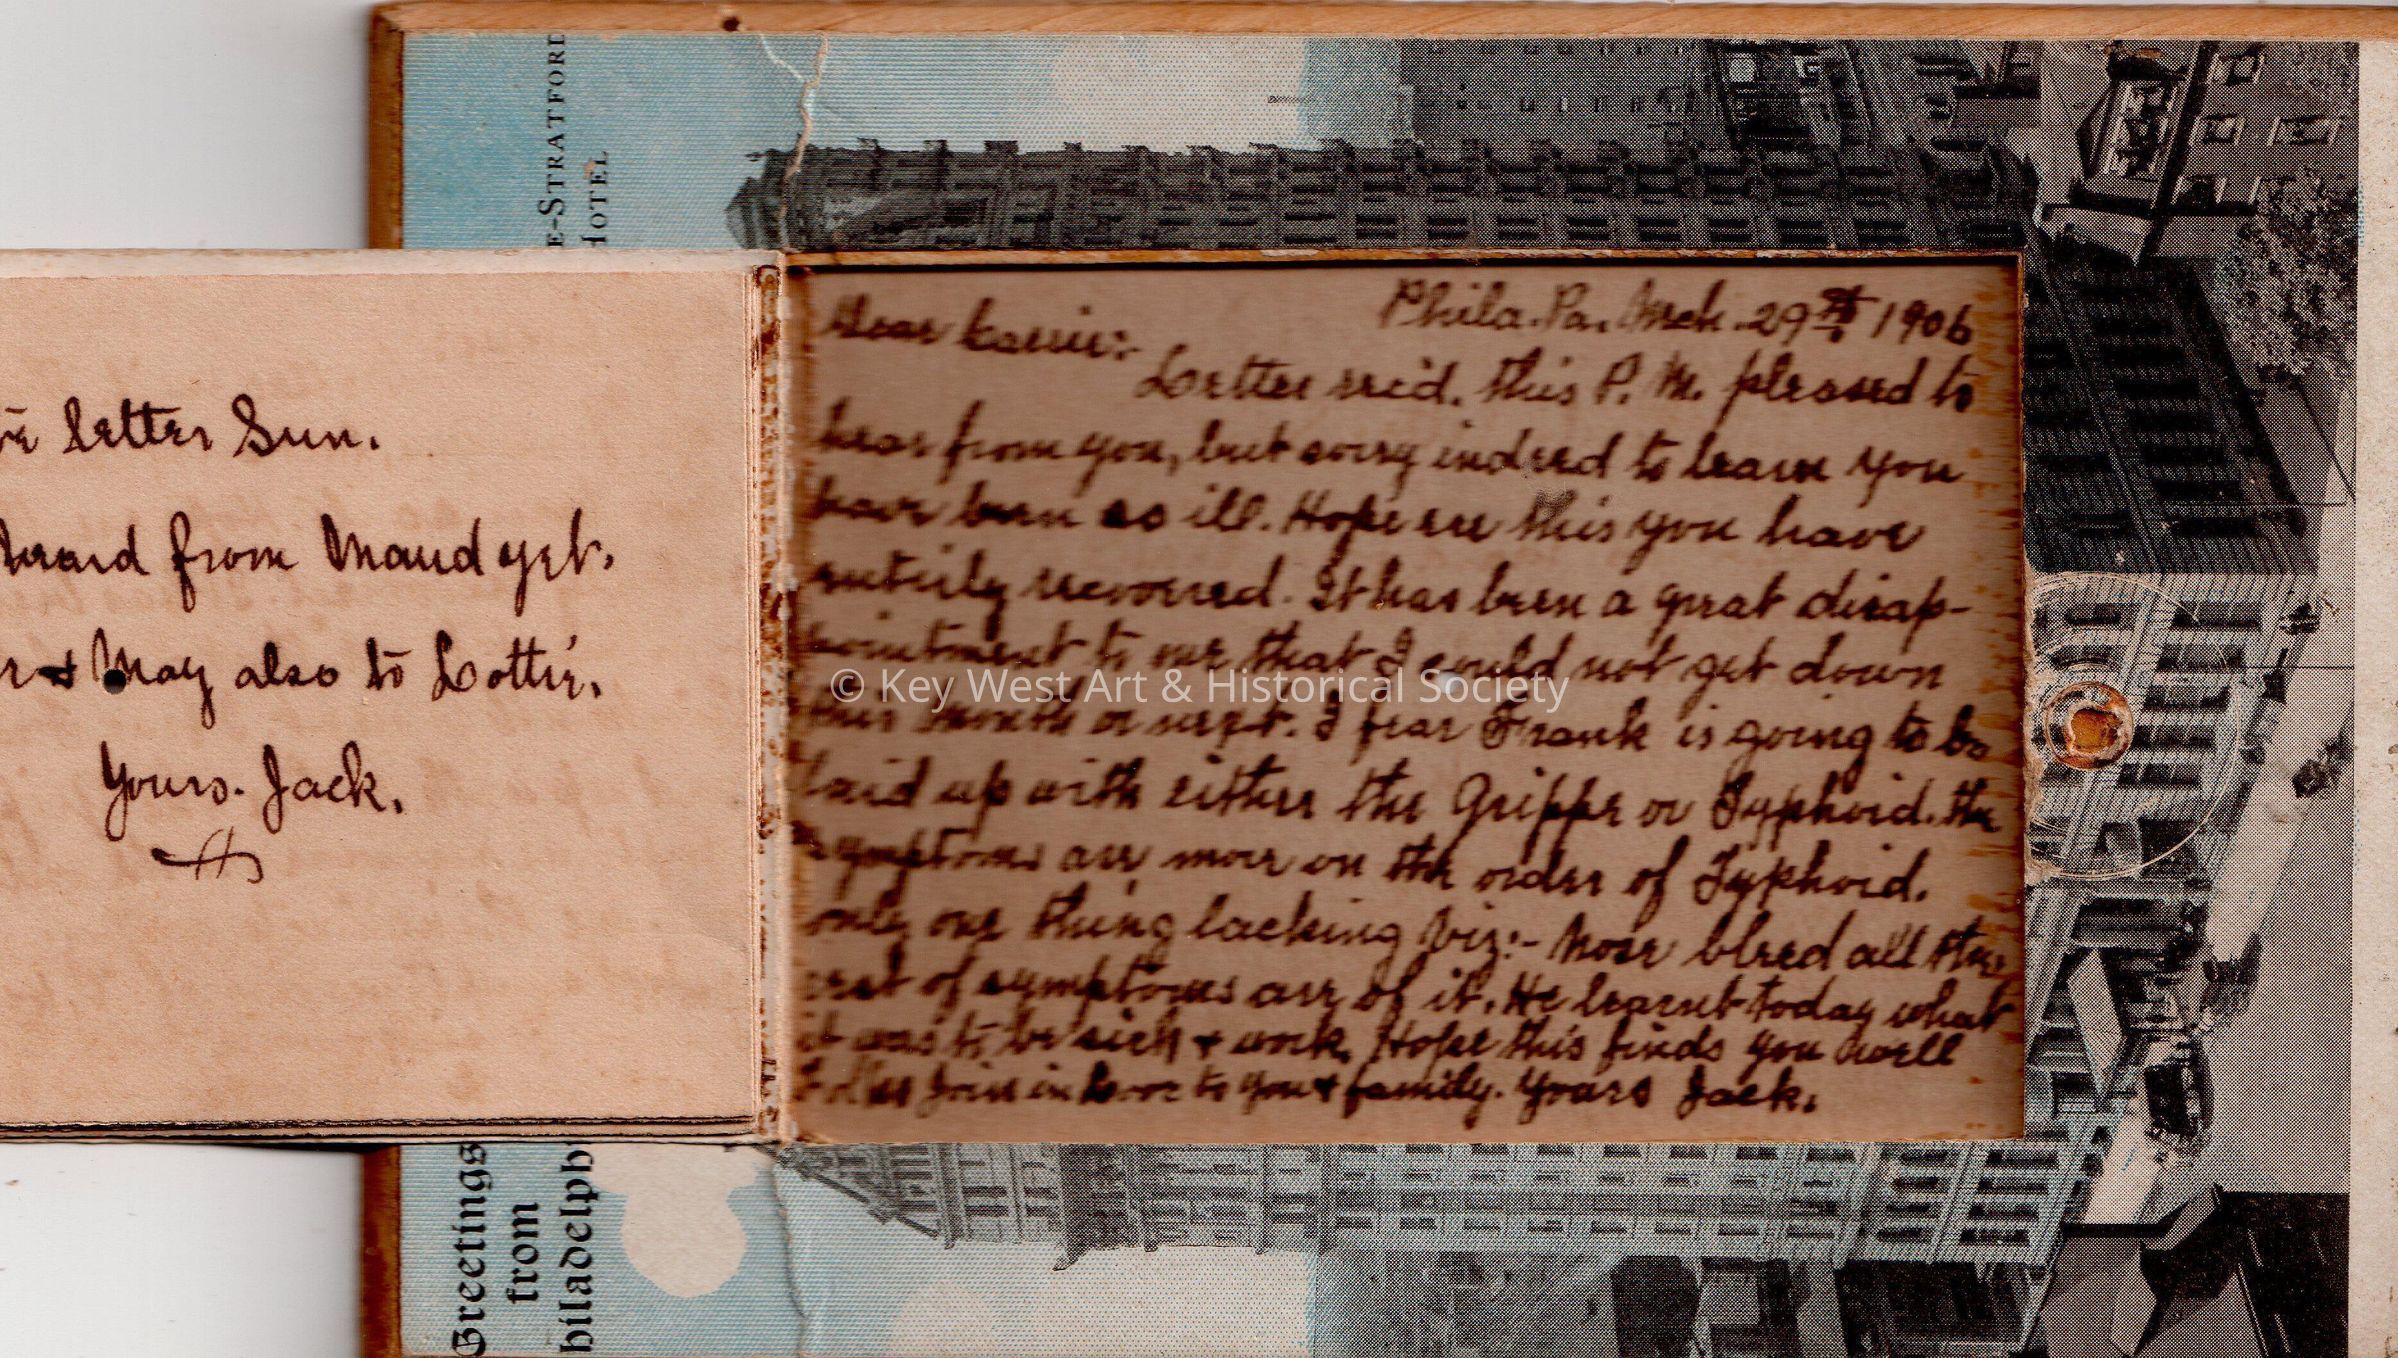 E-STRATFORD
HOTEL
letter Sun.
heard from Maud yet.
& May also to Lottie.
Yours. Jack.
Phila. Pa. Mch. 29th 1906
Dear Carrie:-
Letter rec'd. this P. M. pleased to
hear from you, but sorry indeed to learn you
have been so ill. Hope ere this you have
entirely recovered. It has been a great disap-
pointment to me that I could not get down
this month or next. I fear Frank is going to be
laid up with either the Grippe or Typhoid. the
symptoms are more on the order of Typhoid.
only one thing lacking viz:- Nose bleed all the
rest of symptoms are of it. He learnt today what
it was to be sick & work. Hope this finds you well
Folks Join in Love to you & family. Yours Jack.
© Key West Art & Historical Society
Greetings
from
hiladelph